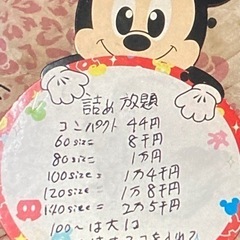 詰め放題
コンパクト 4千円
60size= 8千円
80size= 1万円
100size= 1万4千円
120size= 1万8千円
140size= 2万5千円
100〜は大は